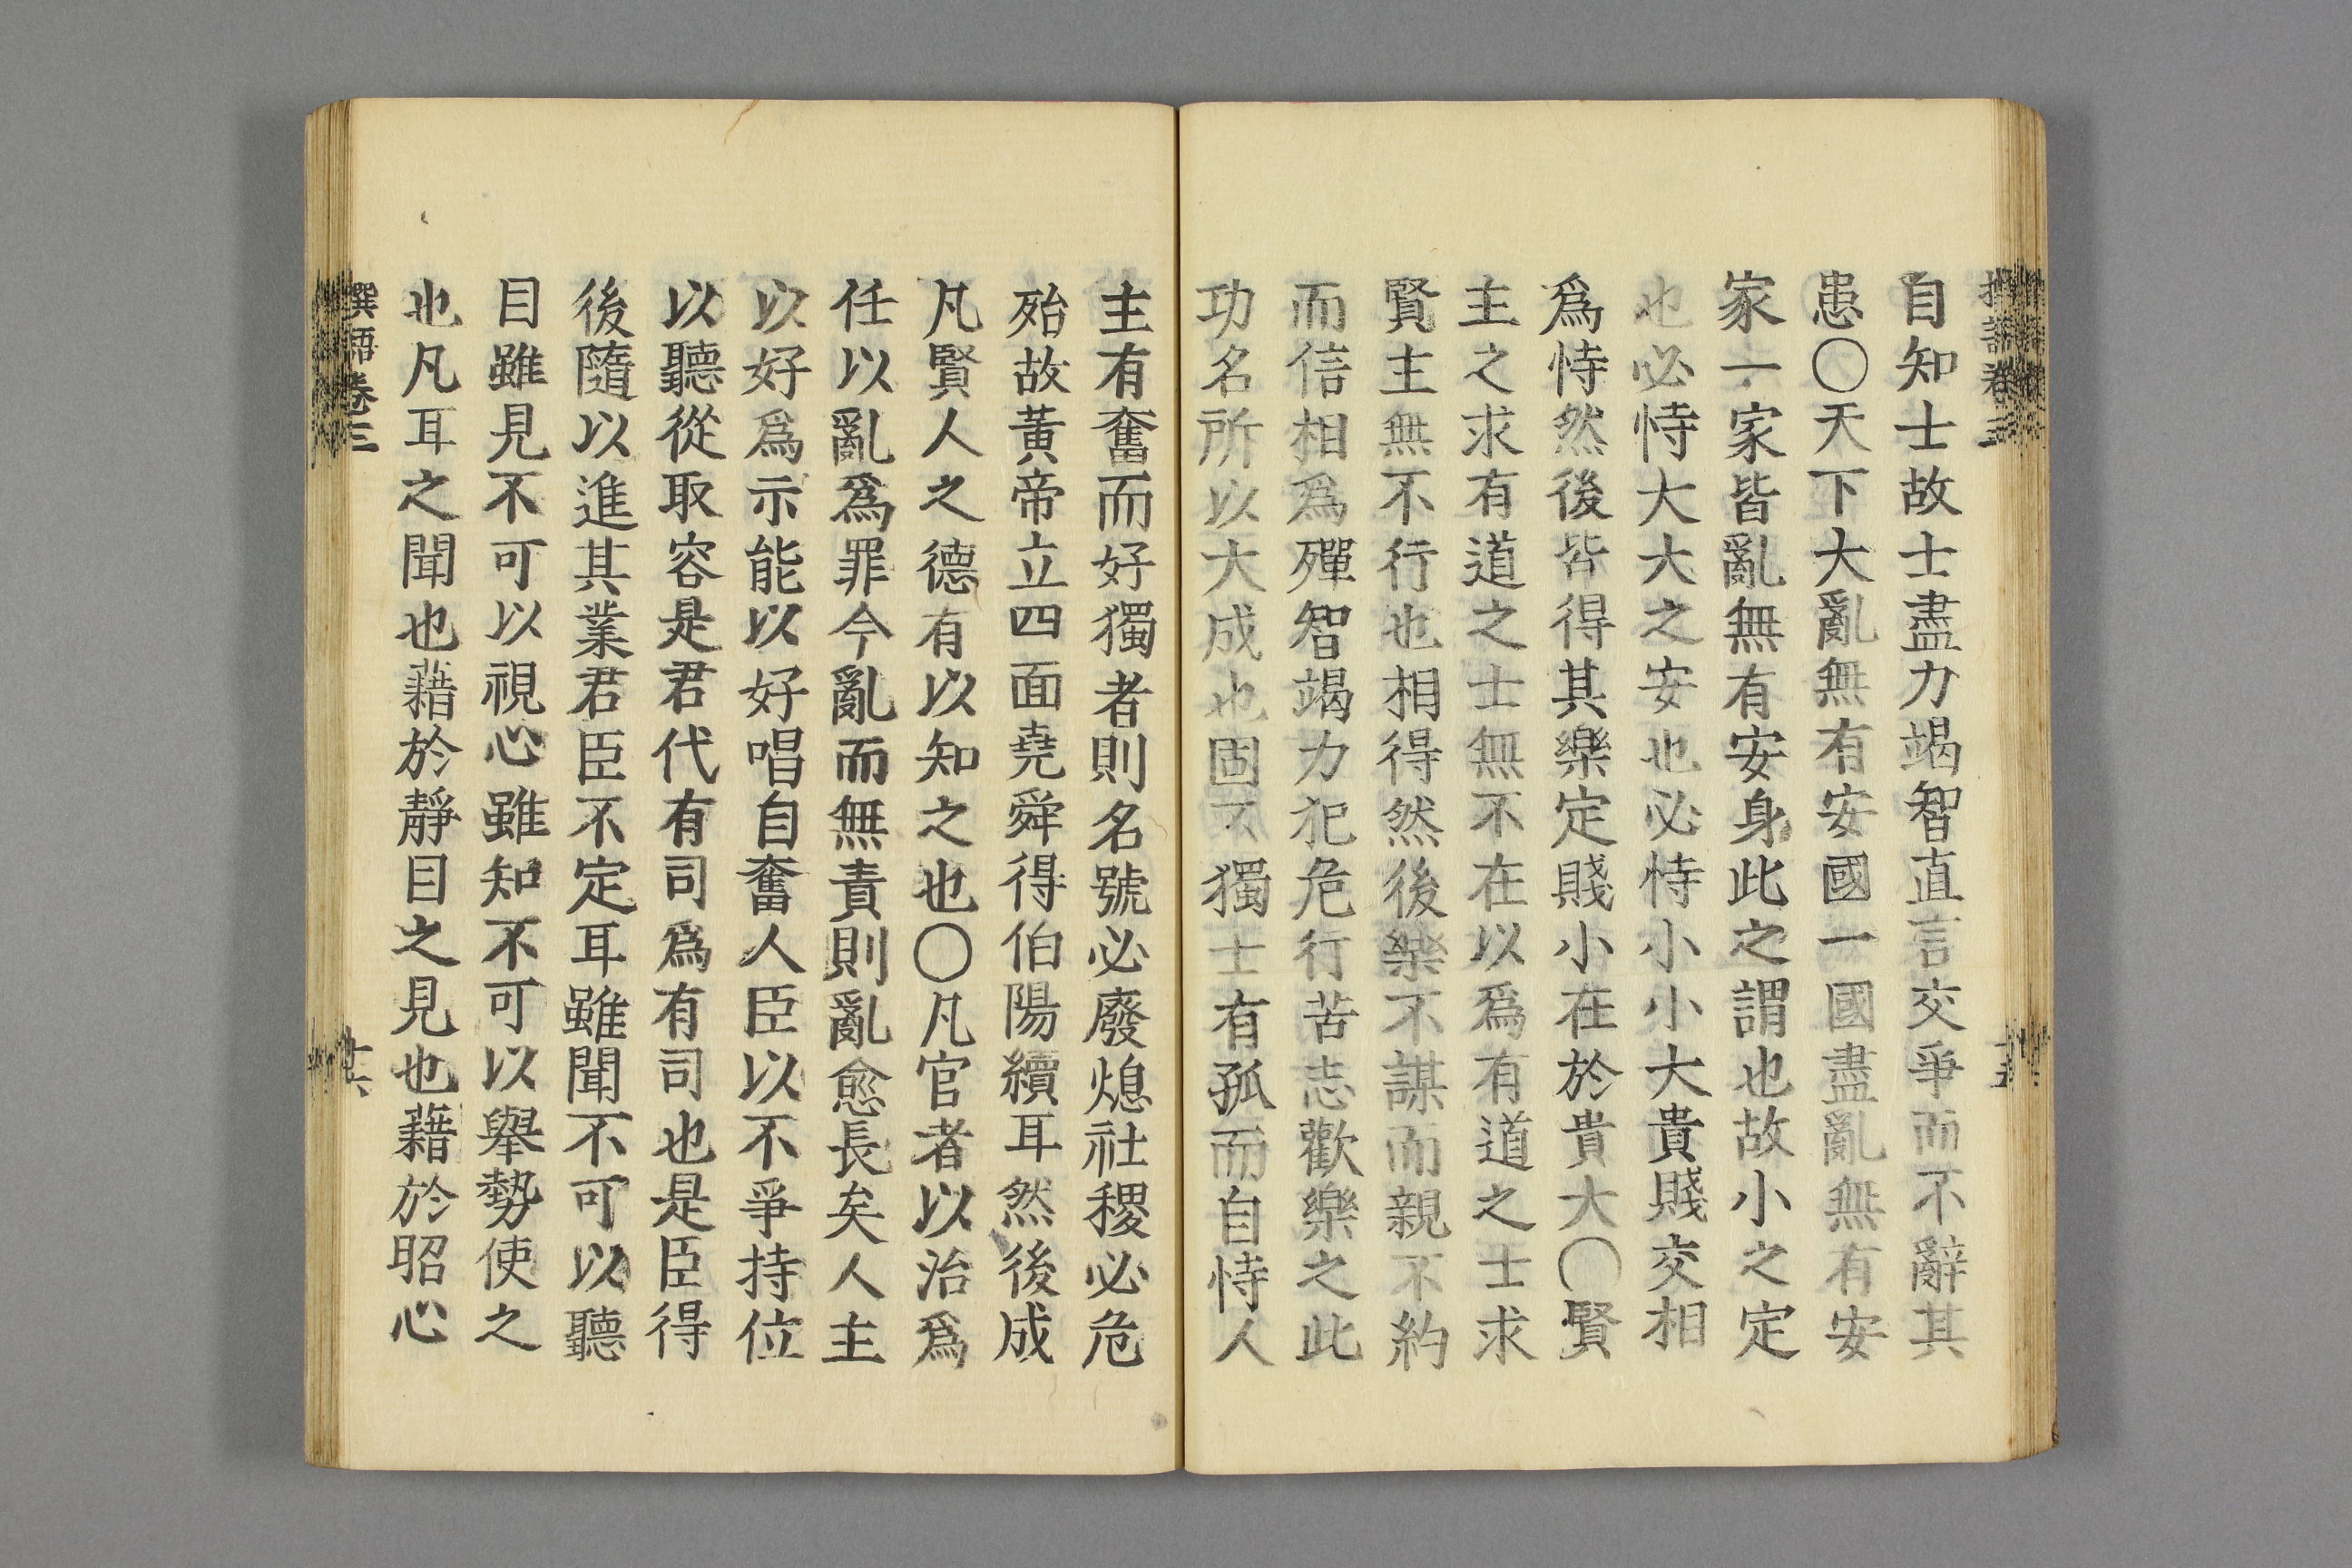 自知士故士盡力竭智直言交爭而不辭其
患〇天下大亂無有安國一國盡亂無有安
家一家皆亂無有安身此之謂也故小之定
也必恃大大之安也必恃小小大貴賤交相
爲恃然後皆得其樂定賤小在於貴大〇賢
主之求有道之士無不在以爲有道之士求
賢主無不行也相得然後樂不謀而親不約
而信相爲殫智竭力犯危行苦志歡樂之此
功名所以大成也固不獨士有孤而自恃人
主有奮而好獨者則名號必廢熄社稷必危
殆故黃帝立四面堯舜得伯陽續耳然後成
凡賢人之德有以知之也〇凡官者以治爲
任以亂爲罪今亂而無責則亂愈長矣人主
以好爲示能以好唱自奮人臣以不爭持位
以聽從取容是君代有司爲有司也是臣得
後隨以進其業君臣不定耳雖聞不可以聽
目雖見不可以視心雖知不可以舉勢使之
也凡耳之聞也藉於靜目之見也藉於昭心
撰語卷三
十六